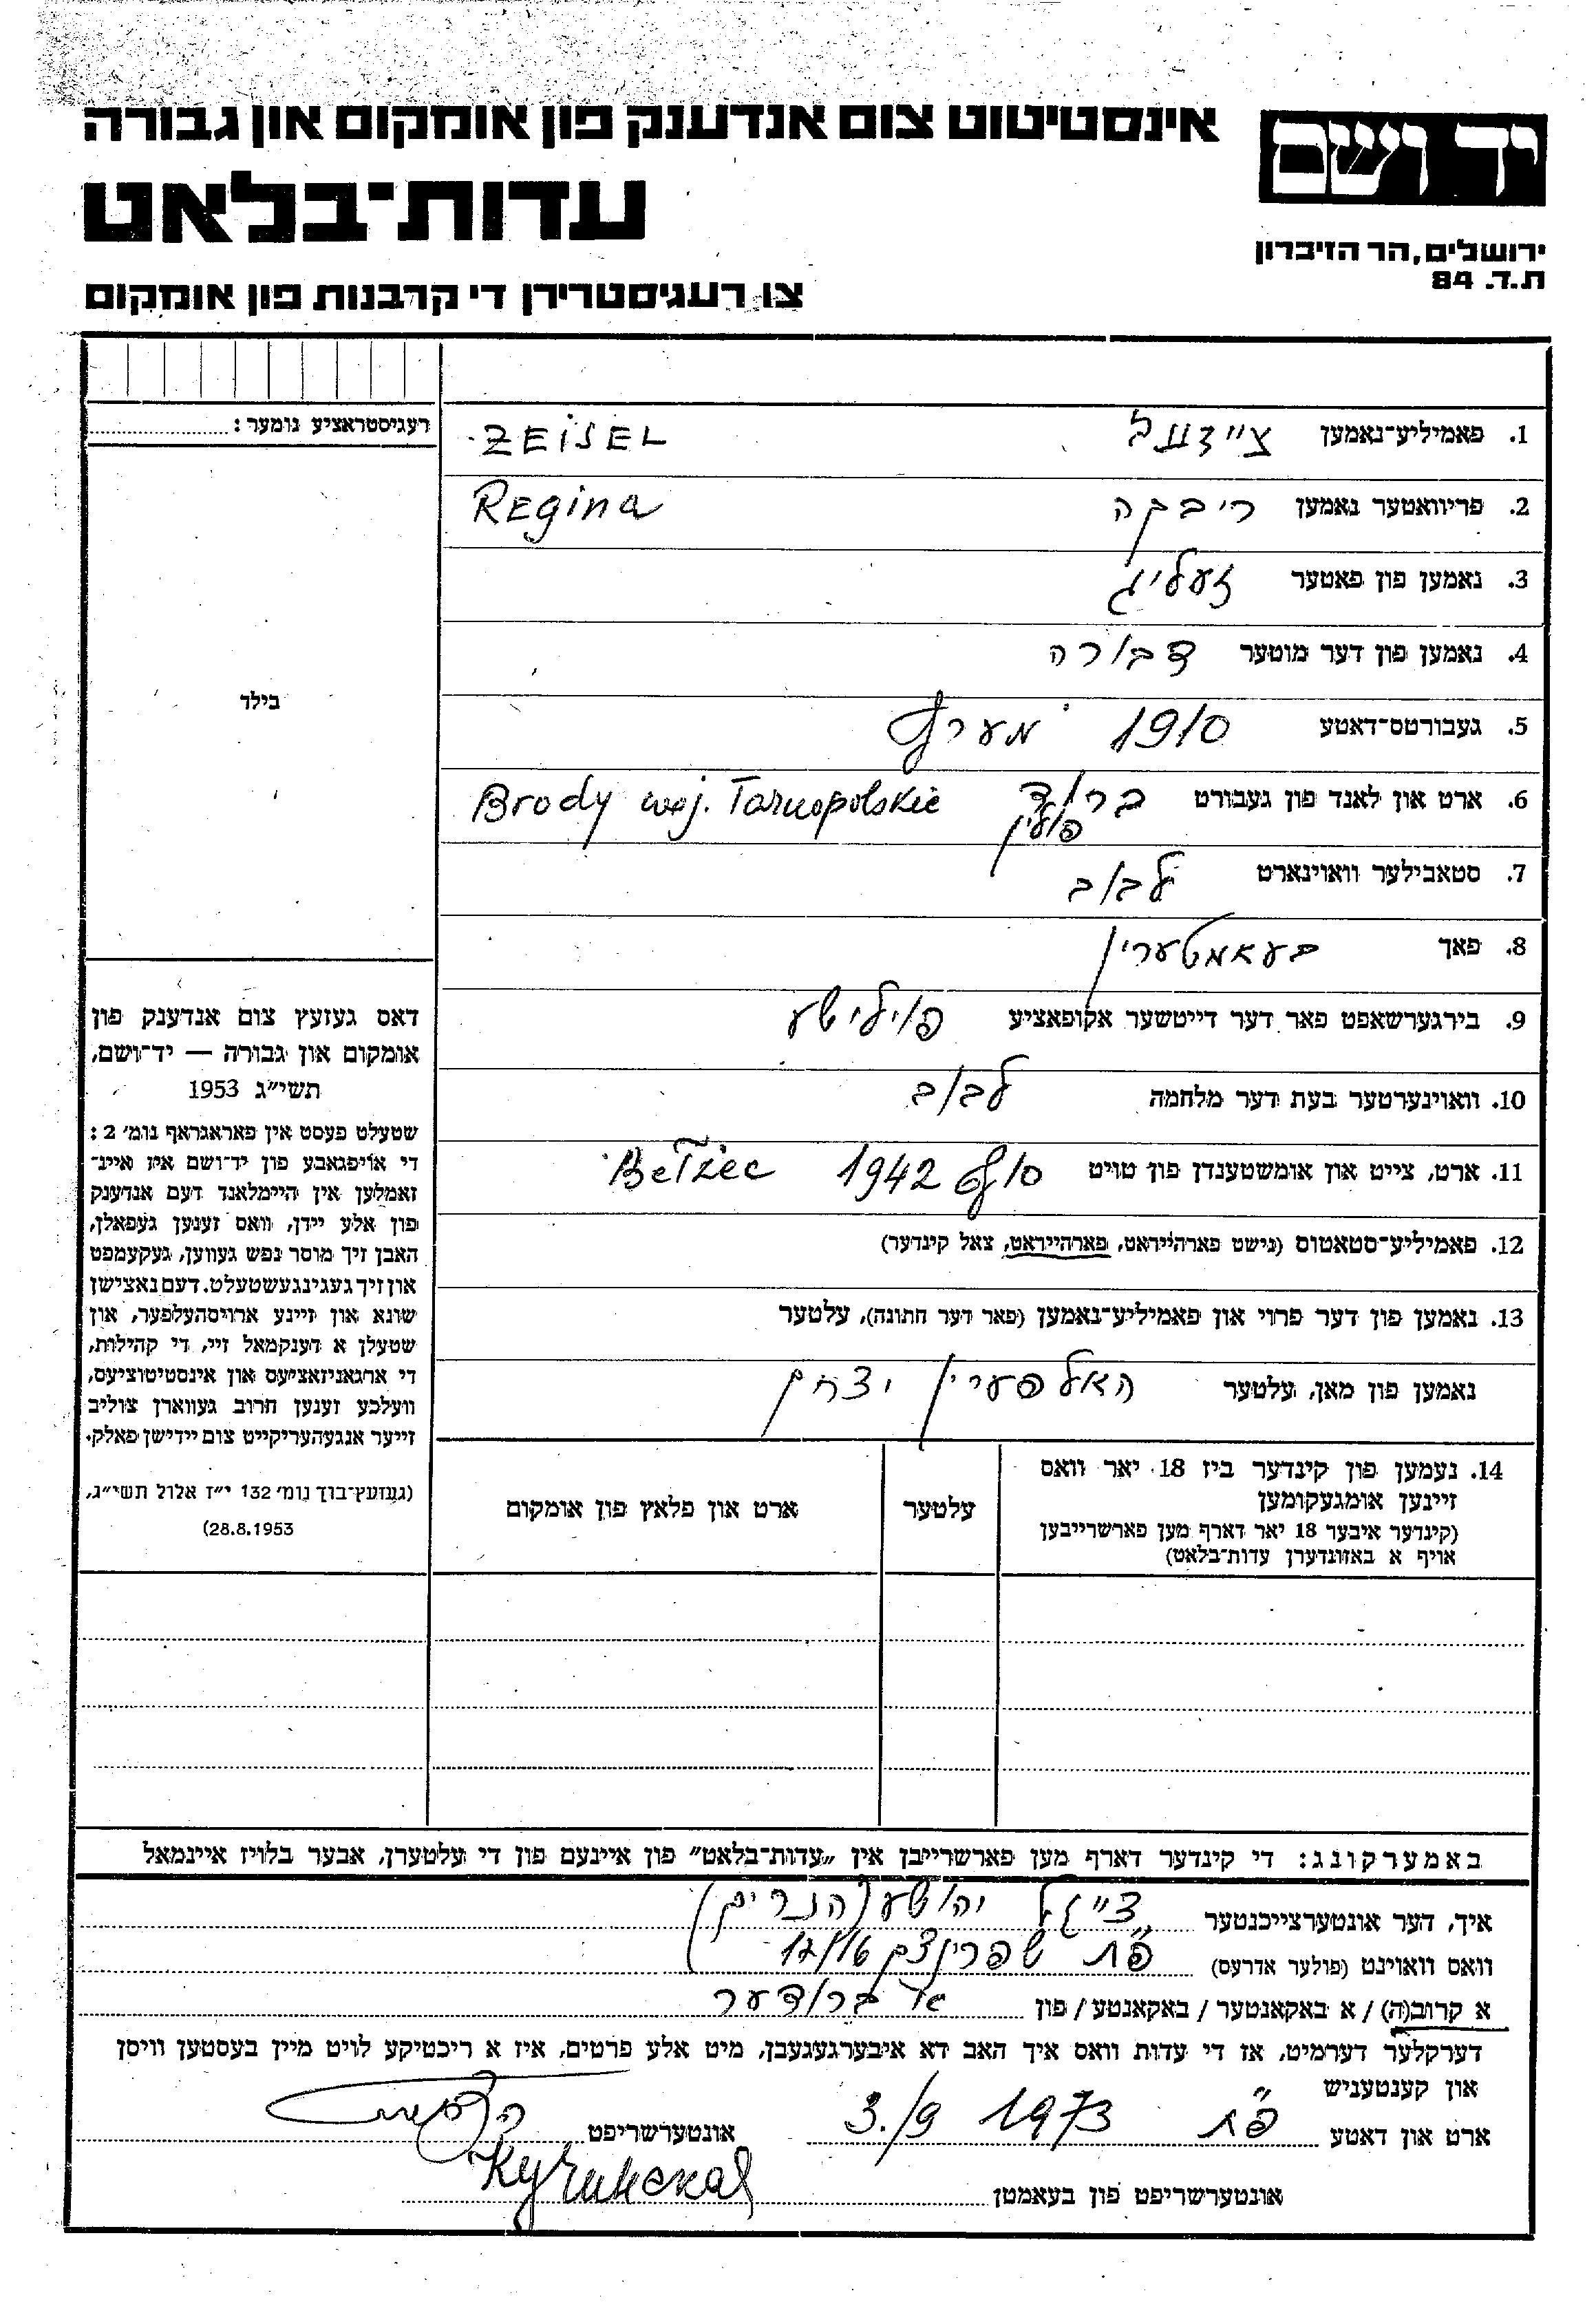 אינסטיטוט צום אנדענק פון אומקום און גבורה
יד ושם
עדות־בלאט
ירושלים, הר הזיכרון
ת.ד. 84
צו רעגיסטרירן די קרבנות פון אומקום
רעגיסטראציע נומער:
1. פאמיליע־נאמען צייזעל ZEISEL
2. פריוואטער נאמען ריבקה Regina
3. נאמען פון פאטער זעליג
4. נאמען פון דער מוטער דבורה
5. געבורטס־דאטע 1910 מערץ
6. ארט און לאנד פון געבורט בראד Brody woj. Tarnopolskie
פוילין
7. סטאבילער וואוינארט לבוב
8. פאך בעאמטערין
9. בירגערשאפט פאר דער דייטשער אקופאציע פוילישע
10. וואוינערטער בעת דער מלחמה לבוב
11. ארט, צייט און אומשטענדן פון טויט סוף 1942 Bełżec
12. פאמיליע־סטאטוס (נישט פארהייראט, פארהייראט, צאל קינדער)
13. נאמען פון דער פרוי און פאמיליע־נאמען (פאר דער חתונה), עלטער
נאמען פון מאן, עלטער האלפערין יצחק
בילד
דאס געזעץ צום אנדענק פון
אומקום און גבורה — יד־ושם,
תשי״ג 1953
שטעלט פעסט אין פאראגראף נומ׳ 2:
די אויפגאבע פון יד־ושם איז איינ־
זאמלען אין היימלאנד דעם אנדענק
פון אלע יידן, וואס זענען געפאלן,
האבן זיך מוסר נפש געווען, געקעמפט
און זיך געגינגעשטעלט. דעם נאצישן
שונא און זיינע ארויסהעלפער, און
שטעלן א דענקמאל זיי, די קהילות,
די ארגאניזאציעס און אינסטיטוציעס,
וועלכע זענען חרוב געווארן צוליב
זייער אנגעהעריקייט צום יידישן פאלק.
(געזעץ־בוך נומ׳ 132 י״ז אלול תשי״ג,
28.8.1953)
14. נעמען פון קינדער ביז 18 יאר וואס
זיינען אומגעקומען
(קינדער איבער 18 יאר דארף מען פארשרייבן
אויף א באזונדערן עדות־בלאט)
עלטער
ארט און פלאץ פון אומקום
באמערקונג: די קינדער דארף מען פארשרייבן אין „עדות־בלאט” פון איינעם פון די עלטערן, אבער בלויז איינמאל
איך, דער אונטערצייכנטער צייזל יהושע
וואס וואוינט (פולער אדרעס) פ״ת שפרינצק 12/16
א קרוב(ה) / א באקאנטער / באקאנטע / פון ברודער
דערקלער דערמיט, אז די עדות וואס איך האב דא איבערגעגעבן, מיט אלע פרטים, איז א ריכטיקע לויט מיין בעסטען וויסן
און קענטעניש
ארט און דאטע פ״ת 1973 3./9 אונטערשריפט
אונטערשריפט פון בעאמטן Кучинская